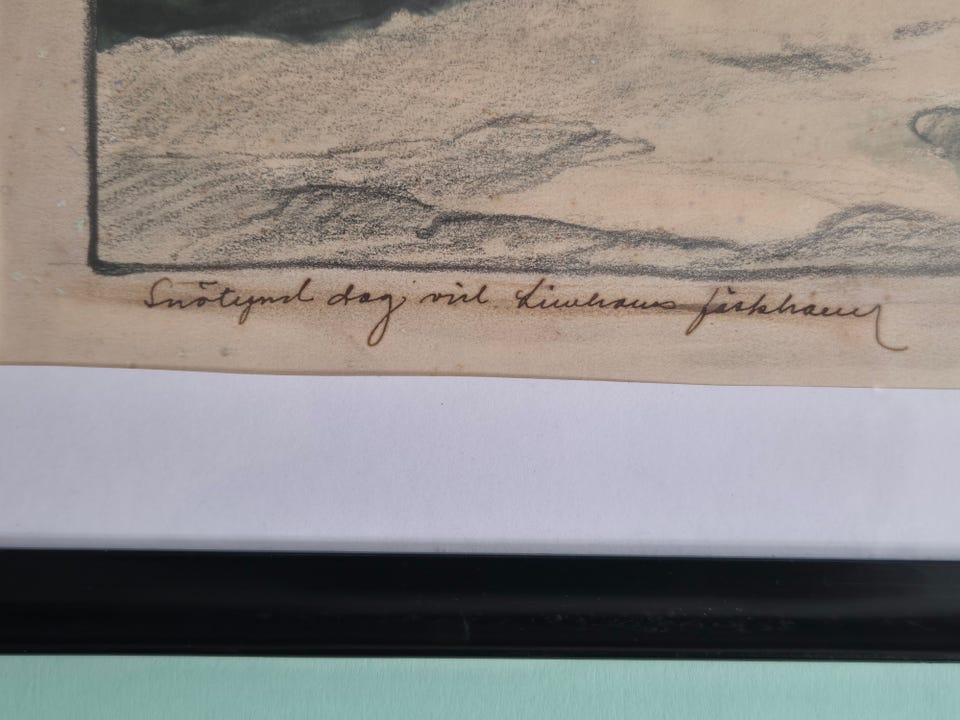 Snötynd dag vid Limhamns fiskhamn